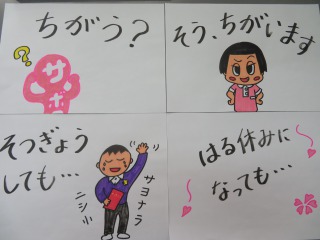 ちがう？
?
サボ
そう、ちがいます
そつぎょう
しても…
サヨナラ
ニシ小
はる休みに
なっても…